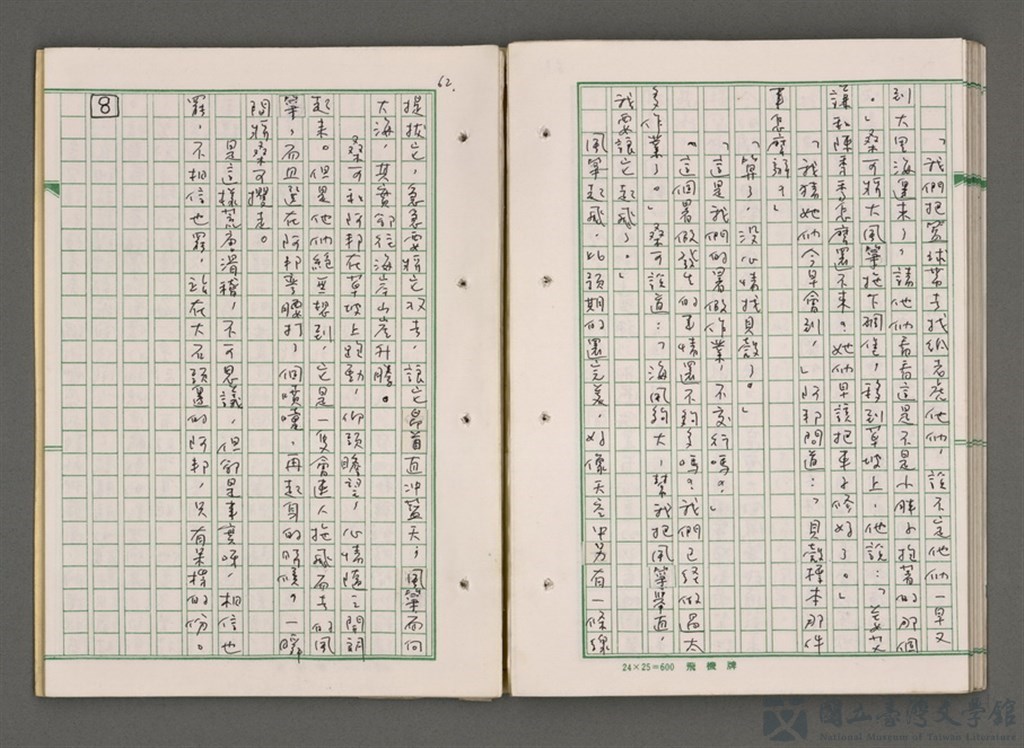 「我們把籃球帶去找紹者虎他們,說不定他們一早又
到大里海邊來了,請他們看看這是不是小胖子抱著的那個
。」桑可將大風箏拖下綱隻,移到草坡上,他說:「
課和陳秀秀怎麼還不來?她們早該把車子修好了。」
「我猜她們今早會到,」阿邦問道:「貝殼標本那件
事怎麼辦?」
「算了,沒心情找貝殼了。」
「這是我們的暑假作業,不交行嗎?」
「這個暑假發生的事情還不夠多嗎?我們已經做過太
多作業了。」桑可說道:「海風夠大,幫我把風箏舉直,
我要讓它起飛了。」
風箏起飛,比預期的還完美,好像天空中另有一條線
62.
提拔它,急急要將它收去,讓它昂首直沖藍天;風箏面向
大海,其實卻往海岸山崖升騰。
桑可和阿邦在草坡上跑動,仰頭瞻望,心情隨之開朗
起來。但是他們絕無想到,它是一隻會連人拖飛而去的風
箏,而且選在阿邦彎腰打了個噴嚏,再起身的時候,一瞬
間將桑可攫走。
是這樣荒唐滑稽,不可思議,但卻是事實呀,相信也
罷,不相信也罷,站在大石頭邊的阿邦,只有呆掉的份。
8
24×25=600 飛機牌
國立臺灣文學館
National Museum of Taiwan Literature